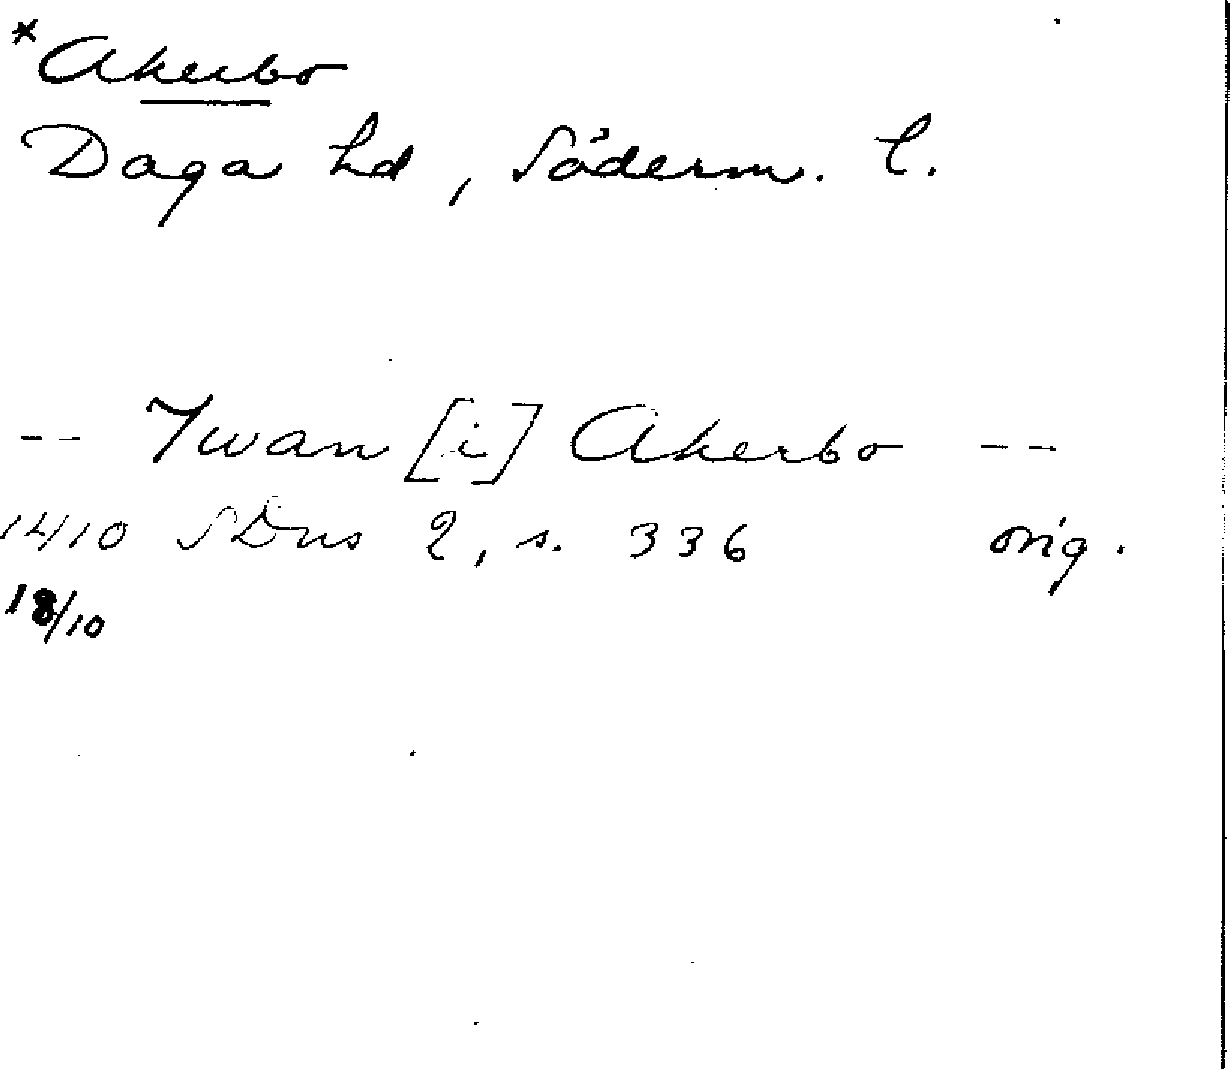 *Akerbo
Daga hd, Söderm. l.
-- Ywan [i] Akerbo --
1410 SDns 2, s. 336 orig.
18/10